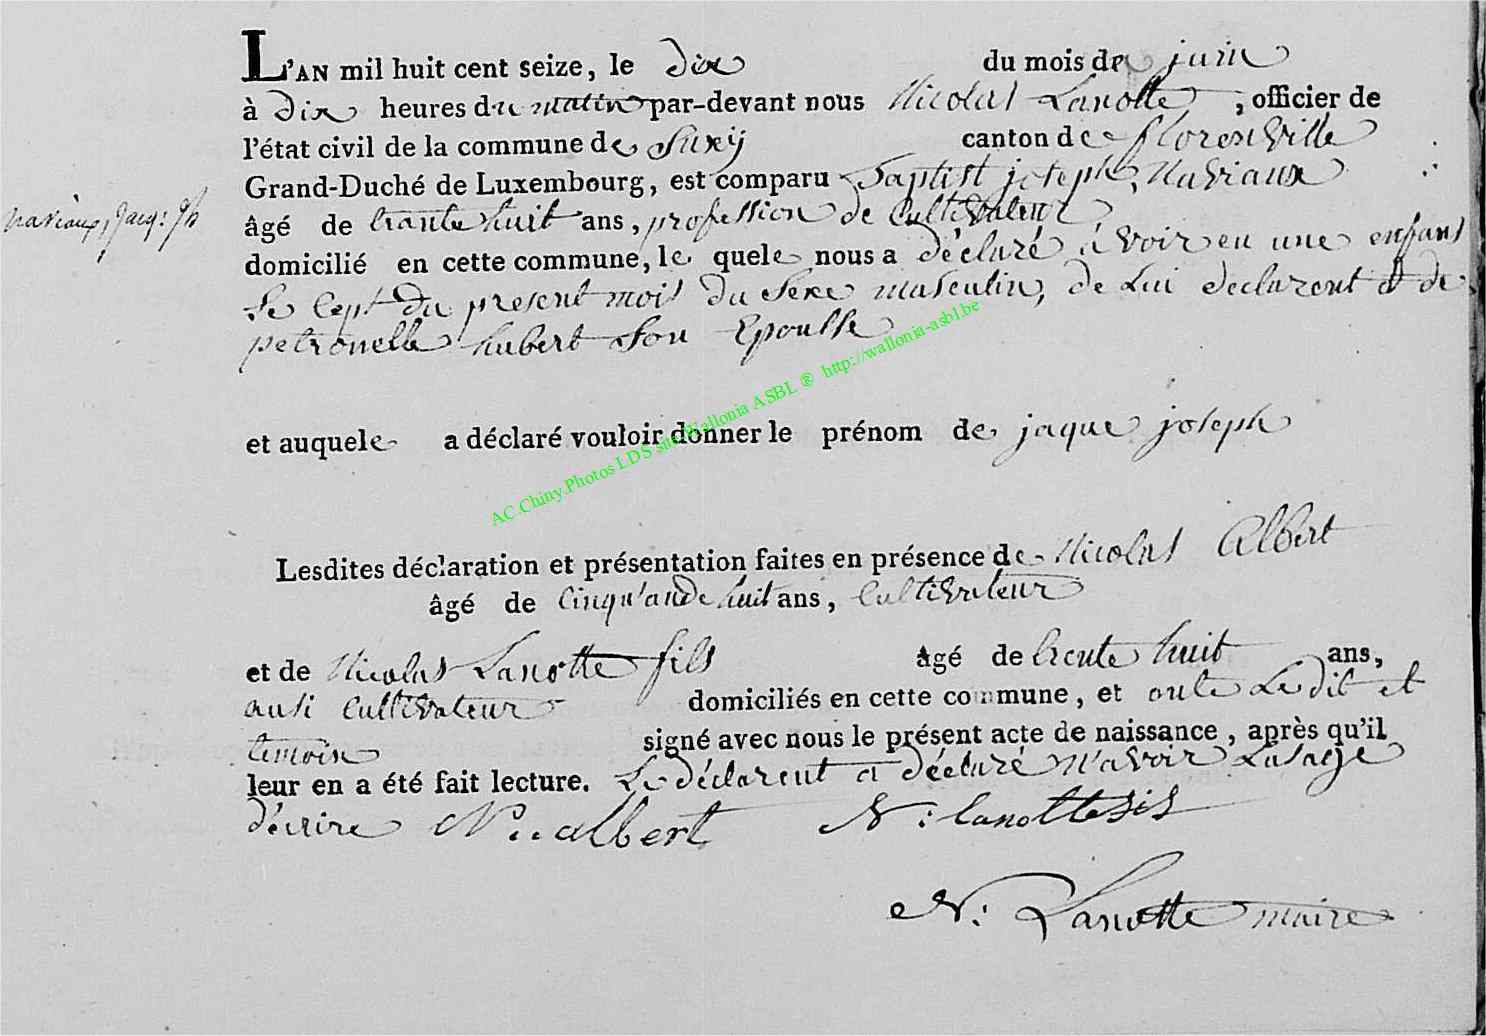 L'AN mil huit cent seize, le dix du mois de juin
à dix heures du matin par-devant nous Nicolas Lanotte, officier de
l'état civil de la commune de Suxÿ canton de florenville
Grand-Duché de Luxembourg, est comparu Baptist joseph Naviaux
naviaux, Jacq: Jh
âgé de trante huit ans, profession de Cultivateur
domicilié en cette commune, le quele nous a déclaré à voir eu une enfant
Le Sept du present mois du Sexe masculin, de Lui declarent et de
petronelle hubert Son Epousse
et auquele a déclaré vouloir donner le prénom de jaque joseph
AC.Chiny.Photos LDS site Wallonia ASBL ® http://wallonia-asbl.be
Lesdites déclaration et présentation faites en présence de Nicolas Albert
âgé de Cinqu'ande huit ans, Cultivateur
et de Nicolas Lanotte fils âgé de trente huit ans,
ausi Cultivateur domiciliés en cette commune, et onte Le dit et
temoin signé avec nous le présent acte de naissance, après qu'il
leur en a été fait lecture. Le déclarent a déclaré n'avoir Lusage
d'ecrire N: albert N: lanotte fis
N: Lanotte maire